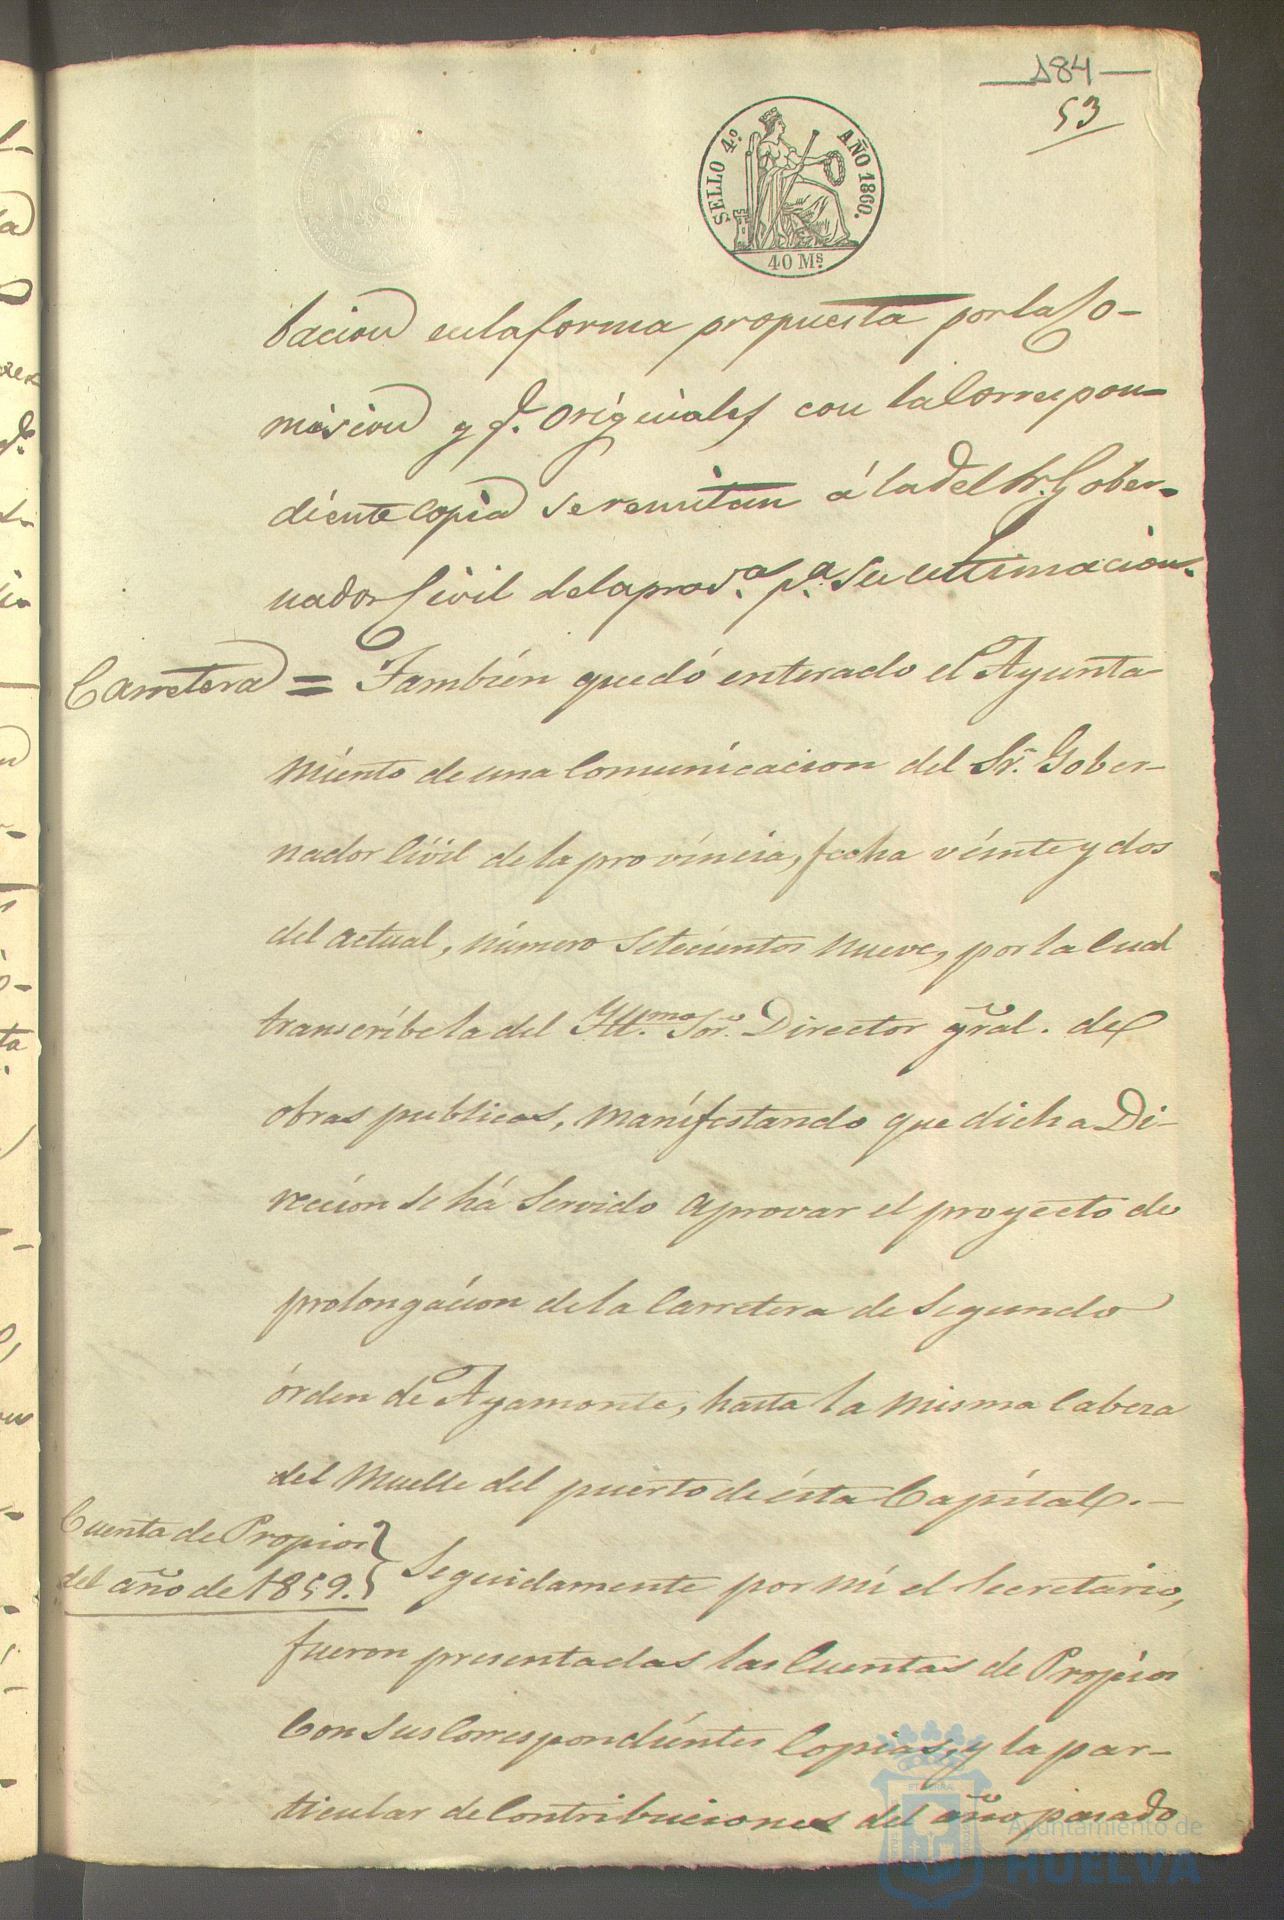 184
53
SELLO 4.º AÑO 1860.
40 Ms.
bacion en la forma propuesta por la Co-
mision y q.e originales con la Correspon-
diente copia se remitan á la del Sr. Gober-
nador Civil de la prov.a p.a su ultimacion.
Carretera = Tambien quedó enterado el Ayunta
miento de una Comunicacion del Sr. Gober-
nador Civil de la provincia, fecha veinte y dos
del actual, número setecientos nueve, por la Cual
transcribe la del Ytt.mo Sor. Director gral. de
obras publicas, manifestando que dicha Di-
reccion se há servido aprovar el proyecto de
prolongacion de la Carretera de Segundo
órden de Ayamonte, hasta la misma Cabeza
del Muelle del puerto de ésta Capital.—
Cuenta de Propios
del año de 1859. } Seguidamente por mi el Secretario,
fueron presentadas las Cuentas de Propios
Con sus Correspondientes Copias, y la par-
ticular de Contribuciones del año pasado
Ayuntamiento de
HUELVA